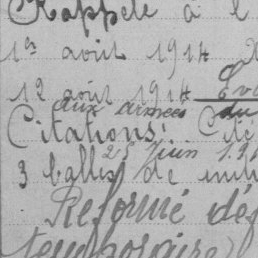 Rappelé à l
1er août 1914
12 août 1914 Eva
aux armées du
Citations: Cité
25 juin 191
3 balles de mit
Réformé déf
temporaire